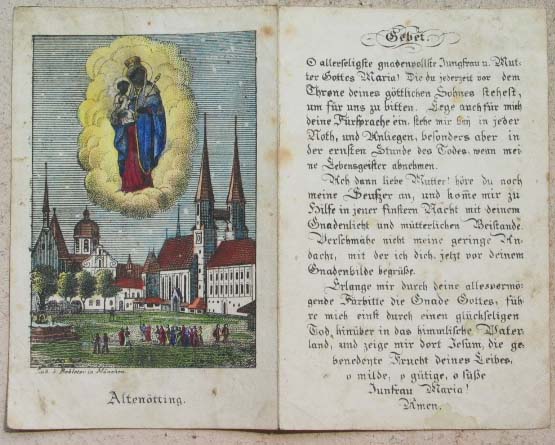 Altenötting.
Gebet.
O allerseligste gnadenvollste Jungfrau u. Mut-
ter Gottes Maria! Die du jederzeit vor dem
Throne deines göttlichen Sohnes stehest,
um für uns zu bitten. Lege auch für mich
deine Fürsprache ein, stehe mir bey in jeder
Noth, und Anliegen, besonders aber in
der ernsten Stunde des Todes, wenn mei-
ne Lebensgeister abnehmen.
Ach dann liebe Mutter! höre du noch
meine Seufzer an, und kom̄e mir zu
Hilfe in jener finstern Nacht mit deinem
Gnadenlicht und mütterlichen Beistande.
Verschmähe nicht meine geringe An-
dacht, mit der ich dich, jetzt vor deinem
Gnadenbilde begrüße.
Erlange mir durch deine allesvermö-
gende Fürbitte die Gnade Gottes, füh-
re mich einst durch einen glückseligen
Tod, hinüber in das himmlische Vater-
land, und zeige mir dort Jesum, die ge-
benedeite Frucht deines Leibes,
o milde, o gütige, o süße
Junfrau Maria!
Amen.